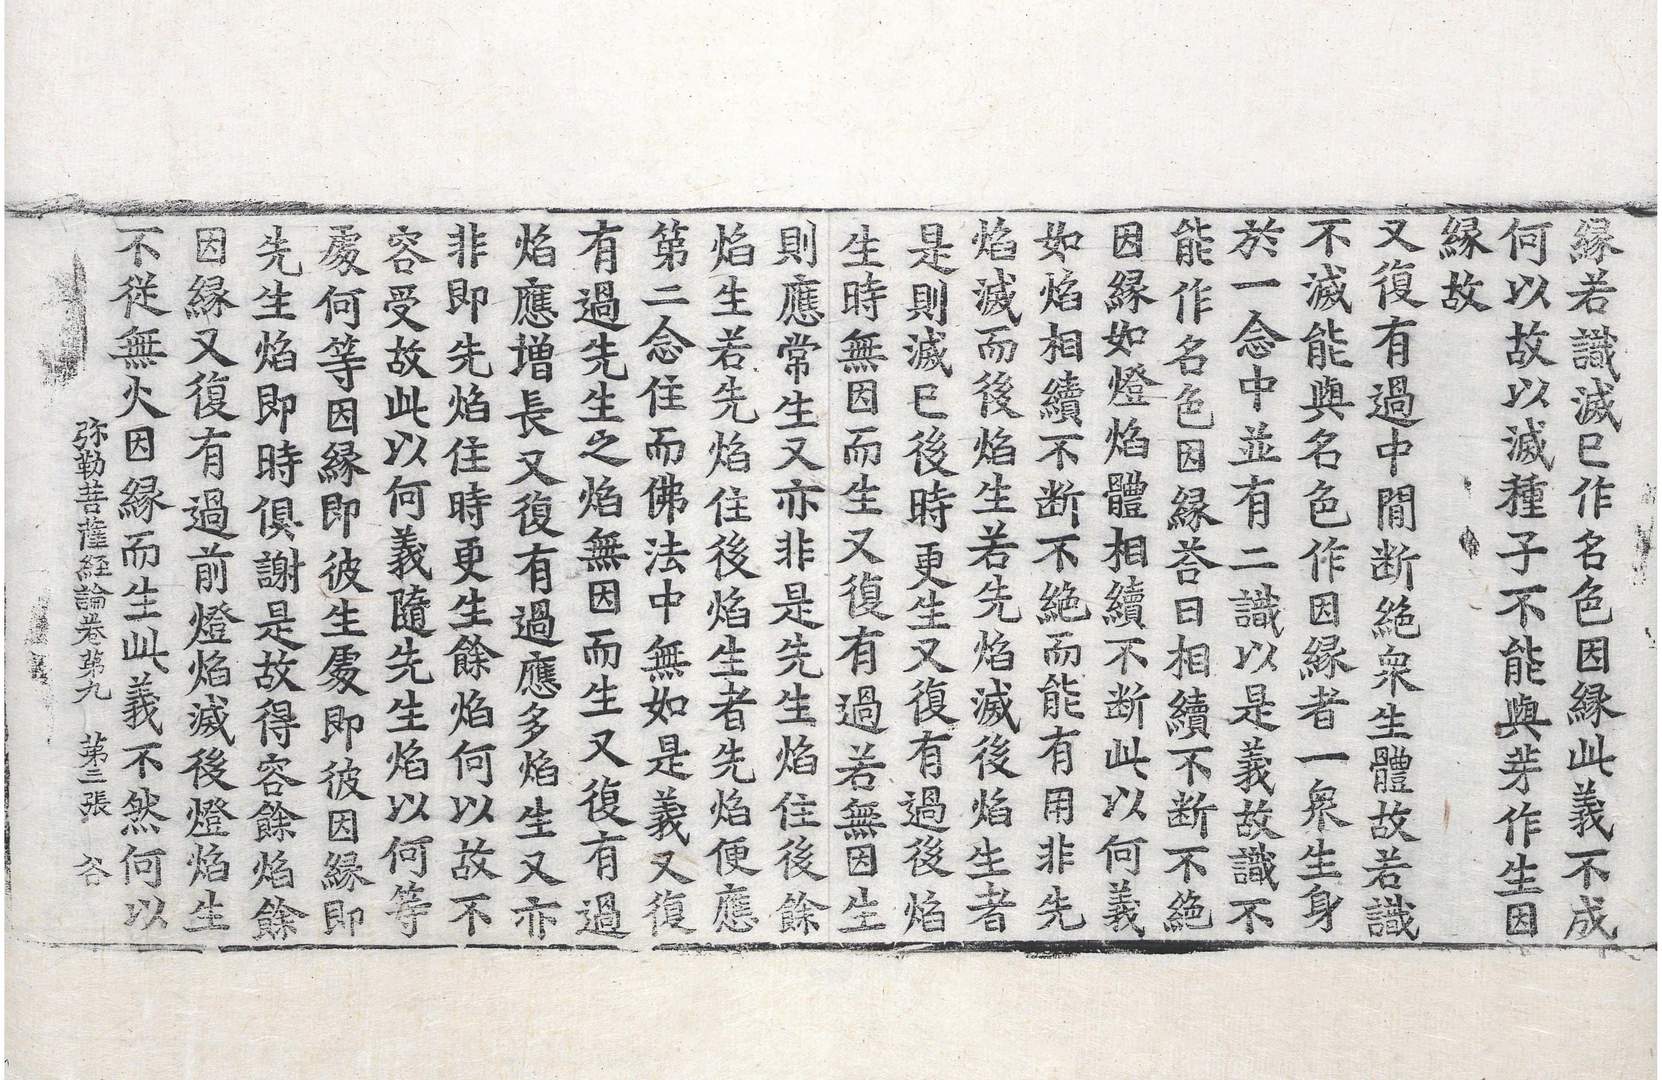 縁若識滅已作名色因縁此義不成
何以故以滅種子不能與芽作生因
縁故
又復有過中閒断絶衆生體故若識
不滅能與名色作因縁者一衆生身
於一念中並有二識以是義故識不
能作名色因縁荅曰相續不断不絶
因縁如燈焰體相續不断此以何義
如焰相續不断不絶而能有用非先
焰滅而後焰生若先焰滅後焰生者
是則滅已後時更生又復有過後焰
生時無因而生又復有過若無因生
則應常生又亦非是先生焰住後餘
焰生若先焰住後焰生者先焰便應
第二念住而佛法中無如是義又復
有過先生之焰無因而生又復有過
焰應增長又復有過應多焰生又亦
非即先焰住時更生餘焰何以故不
容受故此以何義隨先生焰以何等
處何等因縁即彼生處即彼因縁即
先生焰即時俱謝是故得容餘焰餘
因縁又復有過前燈焰滅後燈焰生
不從無火因縁而生此義不然何以
弥勒菩薩經論卷第九 第二張 谷